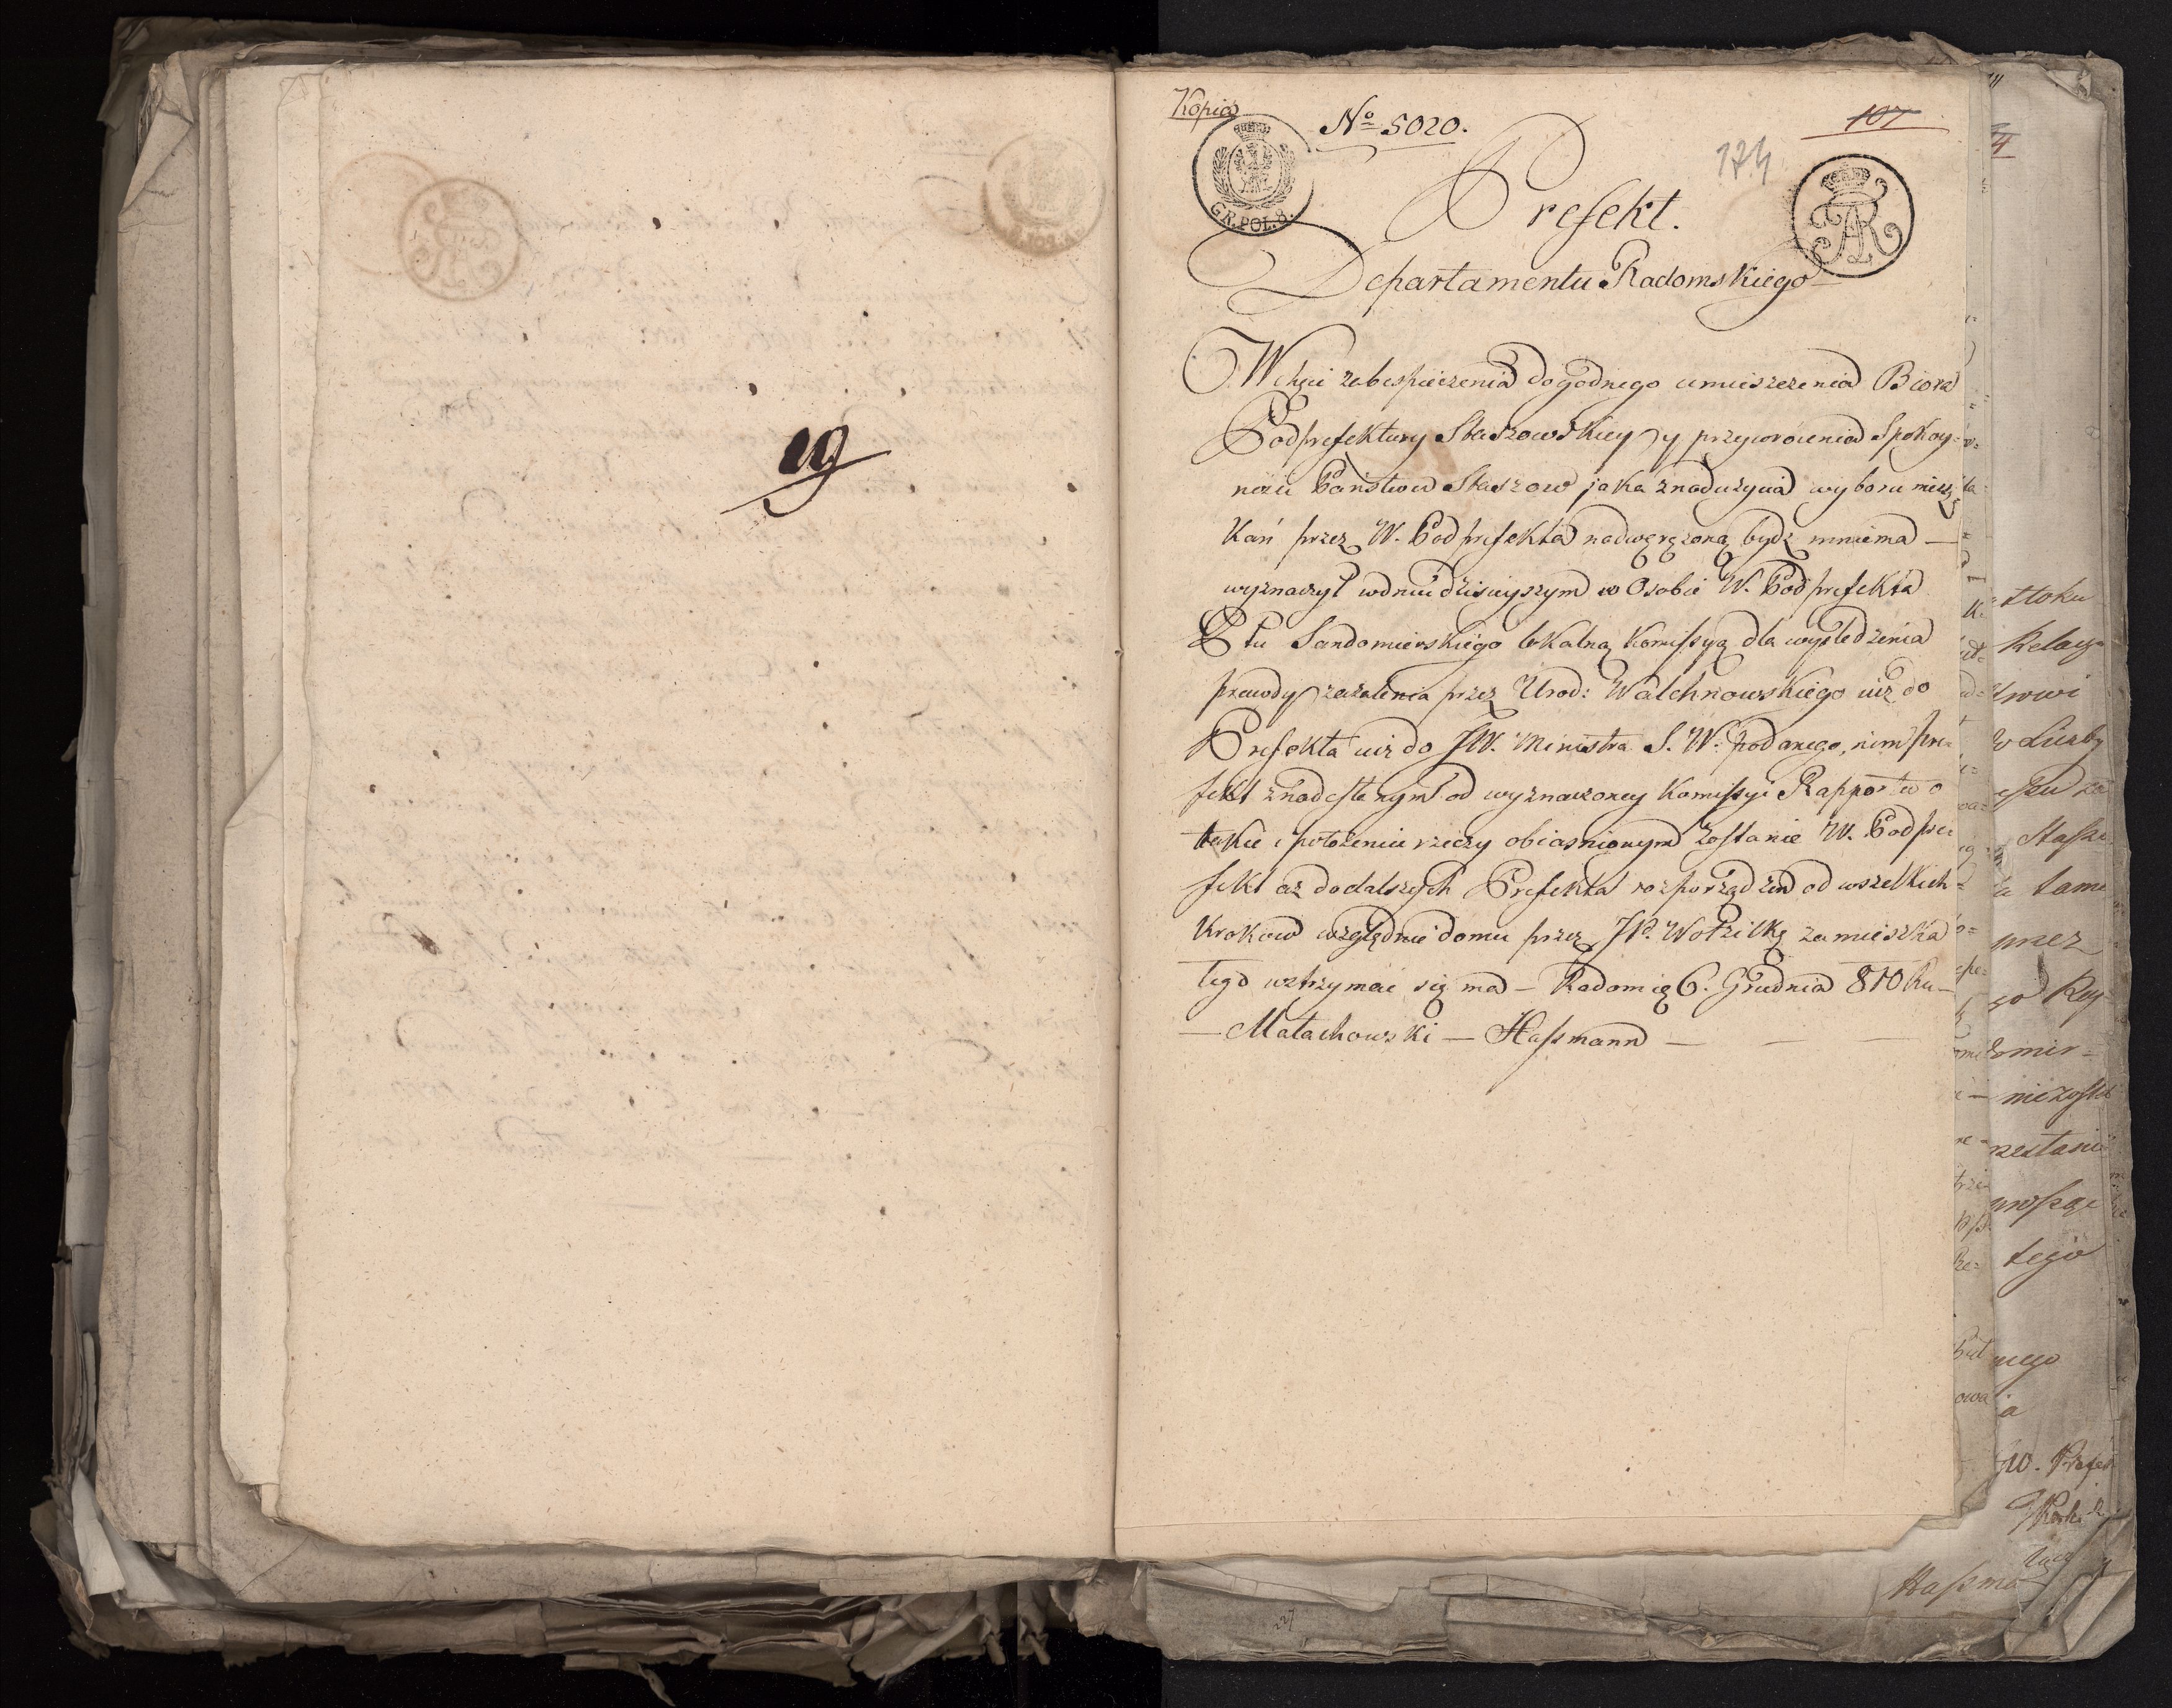 19
Kopia
No 5020.
107
174
GR. POL. 8.
AR
Prefekt.
Departamentu Radomskiego
W chęci zabespieczenia dogodnego umieszczenia Biora
Podprefektury Staszowskiey y przywrócenia Spokoy=
ności Państwa Staszow jaka znadużycia wyboru miesz
kań przez W. Podprefekta nadwęrężoną bydź mniema —
wyznaczył w dniu dzisieyszym w Osobie W. Podprefekta
Ptu Sandomierskiego lokalną Komissyą dla wyśledzenia
prawdy zażalenia przez Urod: Walchnowskiego iuż do
Prefekta iuż do JW. Ministra S. W. podanego, nim Pre-
fekt znadesłanym od wyznaczoney Komissyi Rapportu o
takie i położeniu rzeczy obiasnionym zostanie W. Podpre
fekt aż do dalszych Prefekta rozporządzeń od wszelkich
Krokow względnie domu przez JP. Wotzilkę zamieszka
łego wstrzymać się ma — Radom 6. Grudnia 810 Ru —
— Małachowski — Hassmann —
tłoku
Relacy
tego
227